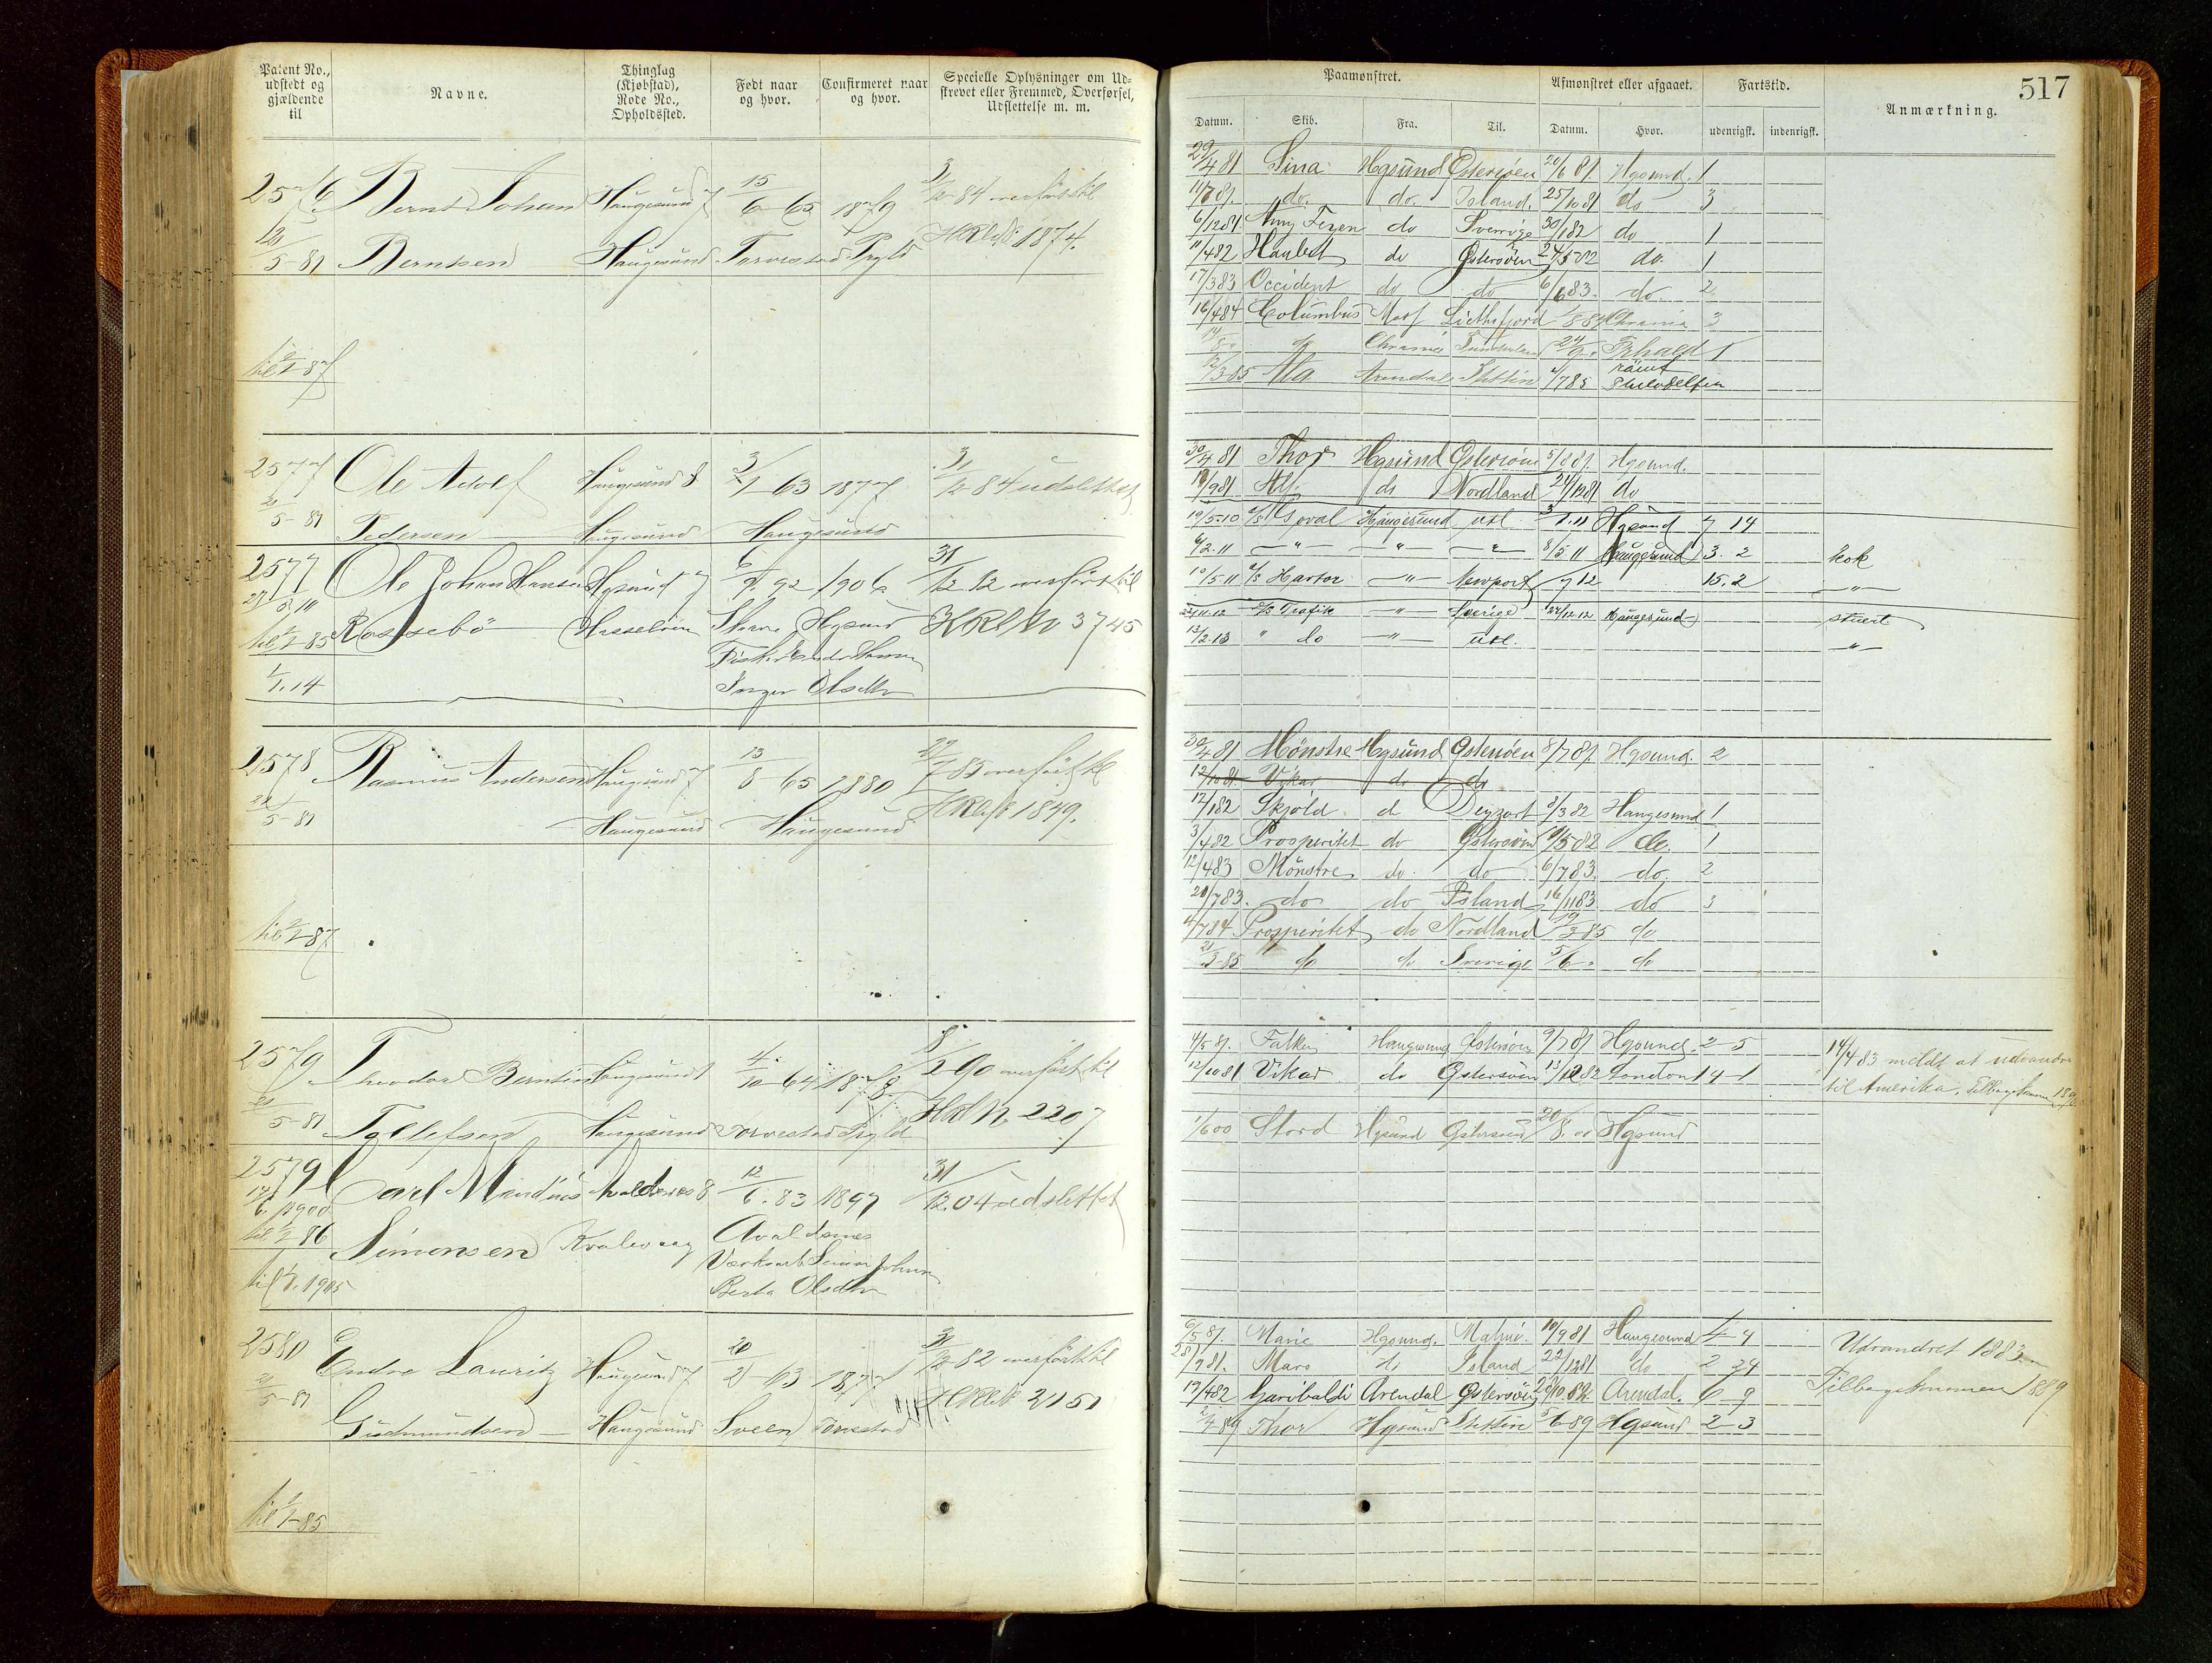 Patent No., udstedt og gjældende til
Navne.
Thinglag (Kjøbstad), Rode No., Opholdssted.
Født naar og hvor.
Confirmeret naar og hvor.
Specielle Oplysninger om Udskrevet eller Fremmed, Overførsel, Udslettelse m. m.
2576 Bernt Johan Haugesund 7 15/6 65 1879 3/12 84 overført til
5-81 Berntsen Haugesund Torvestad HRl№ 1874.
til 1/1-87
2577 Ole Adolf Haugesund 8 3/1 63 1877 31/12 84 udslettet
21/5-81 Pedersen Haugesund Haugesund
2577 Ole Johan Hansen Hgsund 7 92 1906 31/12 12 overført til
til 1/1-85 Rossebö Hasselöen Skaare Hgsund 3745
1/1.14 Inger Olsdtr
2578 Rasmus Andersen Haugesund 7 13/8 65 1880 85 overført til
21/5-81 Haugesund Haugesund HRl№ 1849.
til 1/1-87
2579 Theodor Berntin Haugesund 4/10 64 1878 90 overført til
21/5-81 Tollefsen Haugesund Torvestad 2207
2579 Carl Mindius Avaldsnes 8 12/6. 83 1897 31/12.04 udslettet
1900
til 1/1 86 Simonsen Kvalevaag Avaldsnes
til 1/1. 1905 Berta Olsdtr
2580 Endre Lauritz Haugesund 7 20/2 63 1877 82 overført til
21/5-81 Gudmundsen Haugesund Sveen Torvestad 2151
til 1/1-85
517
Paamønstret.
Afmønstret eller afgaaet.
Fartstid.
Anmærkning.
Datum. Skib. Fra. Til. Datum. Hvor. udenrigst. indenrigst.
29/4 81 Sina Hgsund Østersøen 20/6 81. Hgsund. 1
11/7 81. do. do. Island. 25/10 81 do 3
6/12 81. do Sverige 30/1 82 do 1
11/4 82 do Østersøen 24/5 82 do. 1
17/3 83 Occident do do 6/6 83. do. 2
16/4 84 Columbus 3
do Chrania Sunderland 24/9 Frhald 1
12/3 85 Ala Arendal Stettin 4/7 85 rømt
30/4 81 Thor Hgsund Østersøen 5/8 81. Hgsund.
9 81 Alf do Nordland 24/12 81 do
19/5-10 Haugesund utl 1.11 Hgsund 7 14
6/2.11 -"- -"- -"- 8/5 11 Haugesund 3. 2 kok
10/5 11 -"- Newport 7 12 15. 2 -"-
22/11-12 D/S Trafik -"- Sverige 24/12.12 Haugesund stuert
13/2.13 " do -"- utl. -"-
30/4 81 Mønstre Hgsund Østersøen 8/7 81. Hgsund. 2
12/10 81. Vikar do do
12/1 82 Skjold do 8/3 82 Haugesund 1
3/4 82 Prosperitet do Østersøen /5 82 do. 1
12/4 83 Mønstre do. do 6/7 83. do. 2
21/7 83. do do Island 16/11 83 do 3
4/7 84 Prosperitet do Nordland 19/3 85 do
21/3-85 do do Sverige 5/6 do
4/5 81. Falken Haugesund Østersøen 9/7 81 Hgsund. 2-5
12/10 81 Vikar do Østersøen 82 London 14-1
14/4 83 meldt at udvandre
til Amerika. Tilbagekommen
1/6 00 Stord Hgsund Østersøen 20/8. 00 Hgsund
6/5 81. Marie Hgsund. Malmö. 10/9 81 Haugesund 4-4
7 81. Mars do Island 22/12 81 do 2 24
19/4 82 Garibaldi Arendal Østersøen 10 82. Arendal. 6-9
2/4-89 Thor Hgsund Stettin 6 89 Hgsund 2-3
Udvandret 1883.
Tilbagekommen 1889